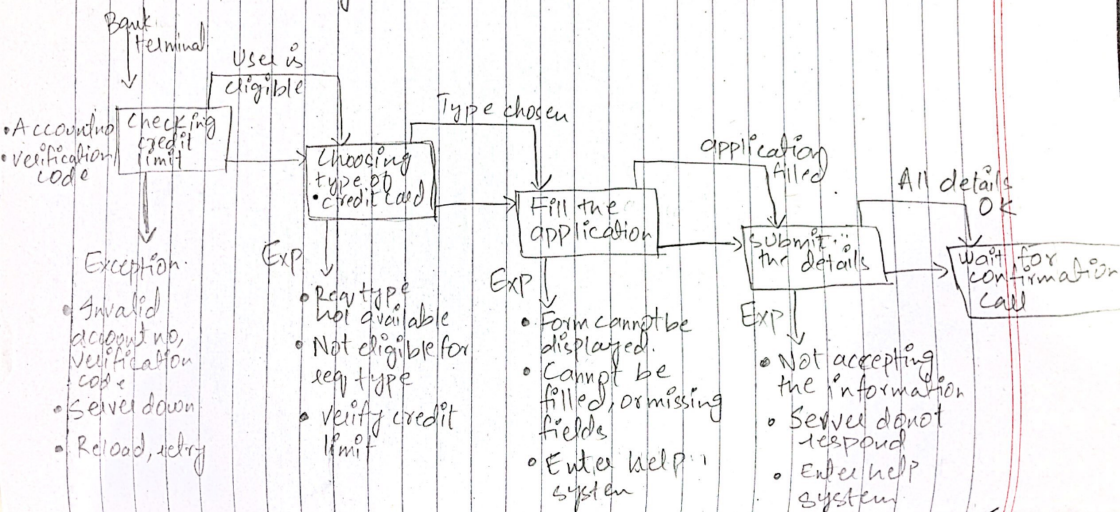 Bank
terminal
• Account no
• verification
code
checking
credit
limit
User is
eligible
Exception.
• Invalid
account no,
verification
code
• Server down
• Reload, retry
Choosing
type of
• credit card
Type chosen
Exp
• Req type
not available
• Not eligible for
req type
• Verify credit
limit
Fill the
application
application
filled
Exp
• Form cannot be
displayed.
• Cannot be
filled, or missing
fields
• Enter help
system
Submit
the details
All details
OK
Exp
• Not accepting
the information
• Server donot
respond
• Enter help
system
Wait for
confirmation
call